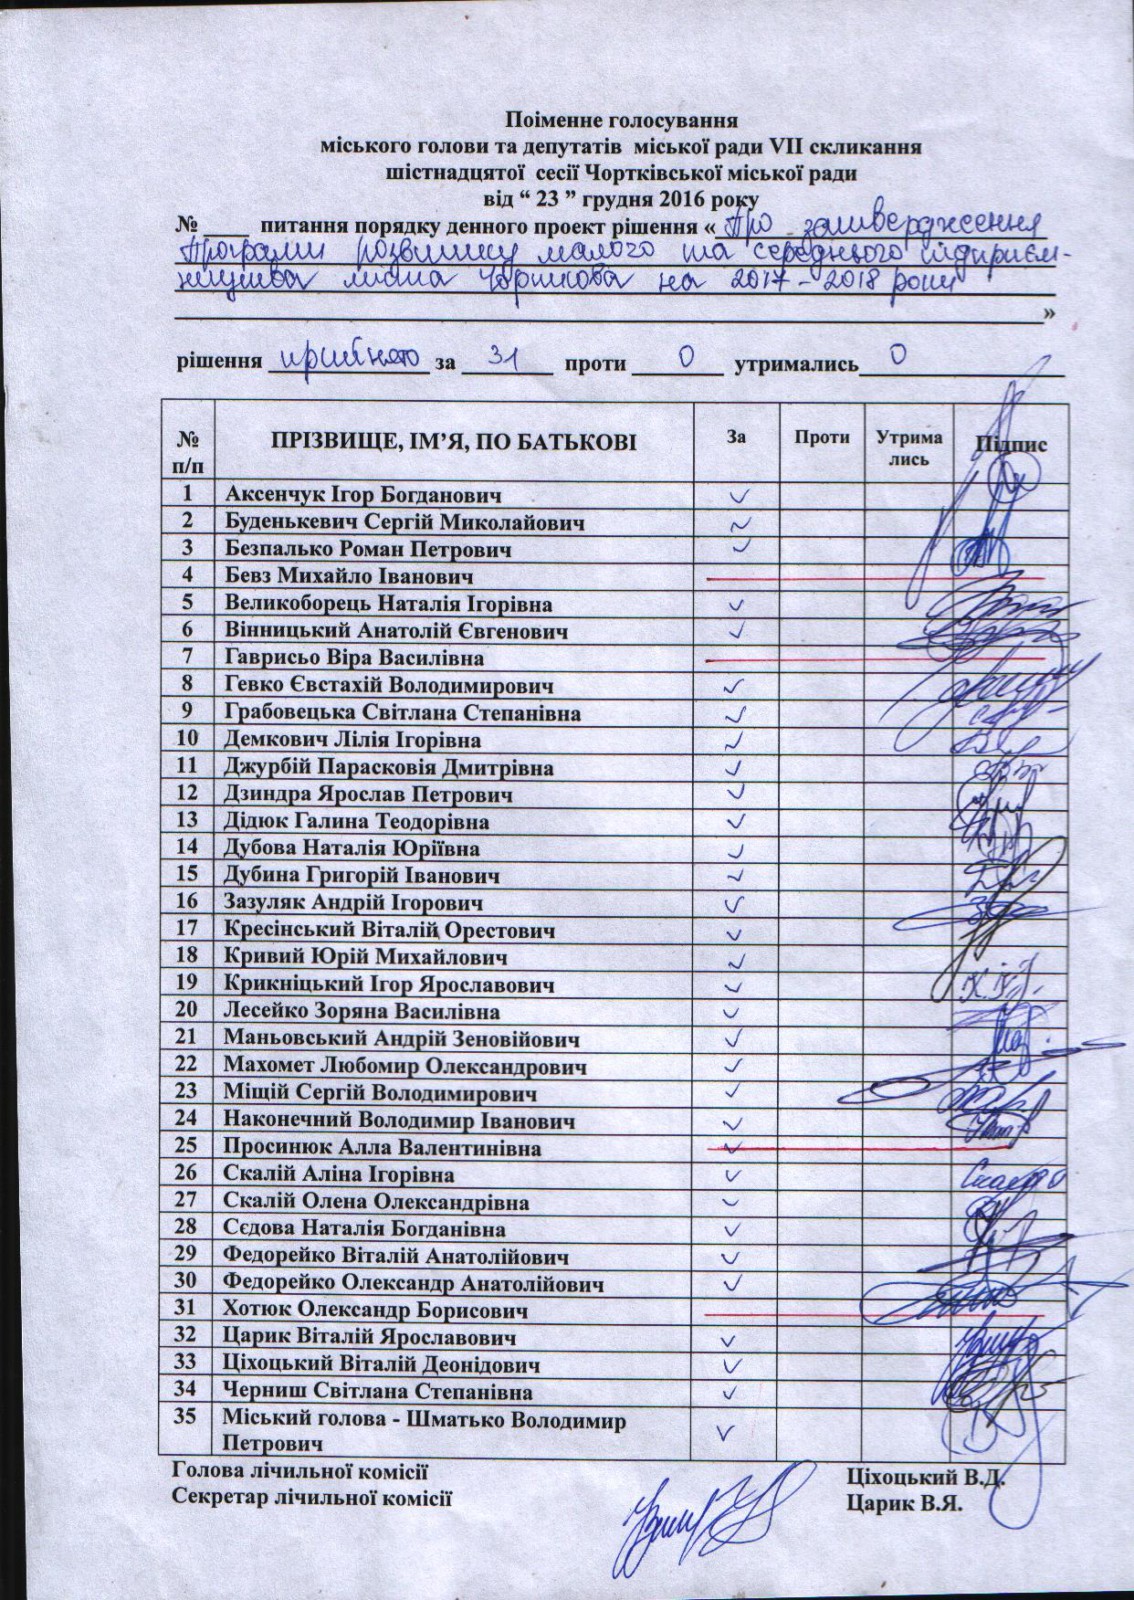 Поіменне голосування
міського голови та депутатів міської ради VII скликання
шістнадцятої сесії Чортківської міської ради
від “ 23 ” грудня 2016 року
№ ____ питання порядку денного проект рішення «Про затвердження
Програми розвитку малого та середнього підприєм-
ництва міста Чорткова на 2017 – 2018 роки
»
рішення прийнято за 31 проти 0 утримались 0
№ п/п ПРІЗВИЩЕ, ІМ’Я, ПО БАТЬКОВІ За Проти Утрима лись Підпис
1 Аксенчук Ігор Богданович
2 Буденькевич Сергій Миколайович
3 Безпалько Роман Петрович
4 Бевз Михайло Іванович
5 Великоборець Наталія Ігорівна
6 Вінницький Анатолій Євгенович
7 Гаврисьо Віра Василівна
8 Гевко Євстахій Володимирович
9 Грабовецька Світлана Степанівна
10 Демкович Лілія Ігорівна
11 Джурбій Парасковія Дмитрівна
12 Дзиндра Ярослав Петрович
13 Дідюк Галина Теодорівна
14 Дубова Наталія Юріївна
15 Дубина Григорій Іванович
16 Зазуляк Андрій Ігорович
17 Кресінський Віталій Орестович
18 Кривий Юрій Михайлович
19 Крикніцький Ігор Ярославович
20 Лесейко Зоряна Василівна
21 Маньовський Андрій Зеновійович
22 Махомет Любомир Олександрович
23 Міщій Сергій Володимирович
24 Наконечний Володимир Іванович
25 Просинюк Алла Валентинівна
26 Скалій Аліна Ігорівна
27 Скалій Олена Олександрівна
28 Сєдова Наталія Богданівна
29 Федорейко Віталій Анатолійович
30 Федорейко Олександр Анатолійович
31 Хотюк Олександр Борисович
32 Царик Віталій Ярославович
33 Ціхоцький Віталій Деонідович
34 Черниш Світлана Степанівна
35 Міський голова - Шматько Володимир
Петрович
Голова лічильної комісії Ціхоцький В.Д.
Секретар лічильної комісії Царик В.Я.